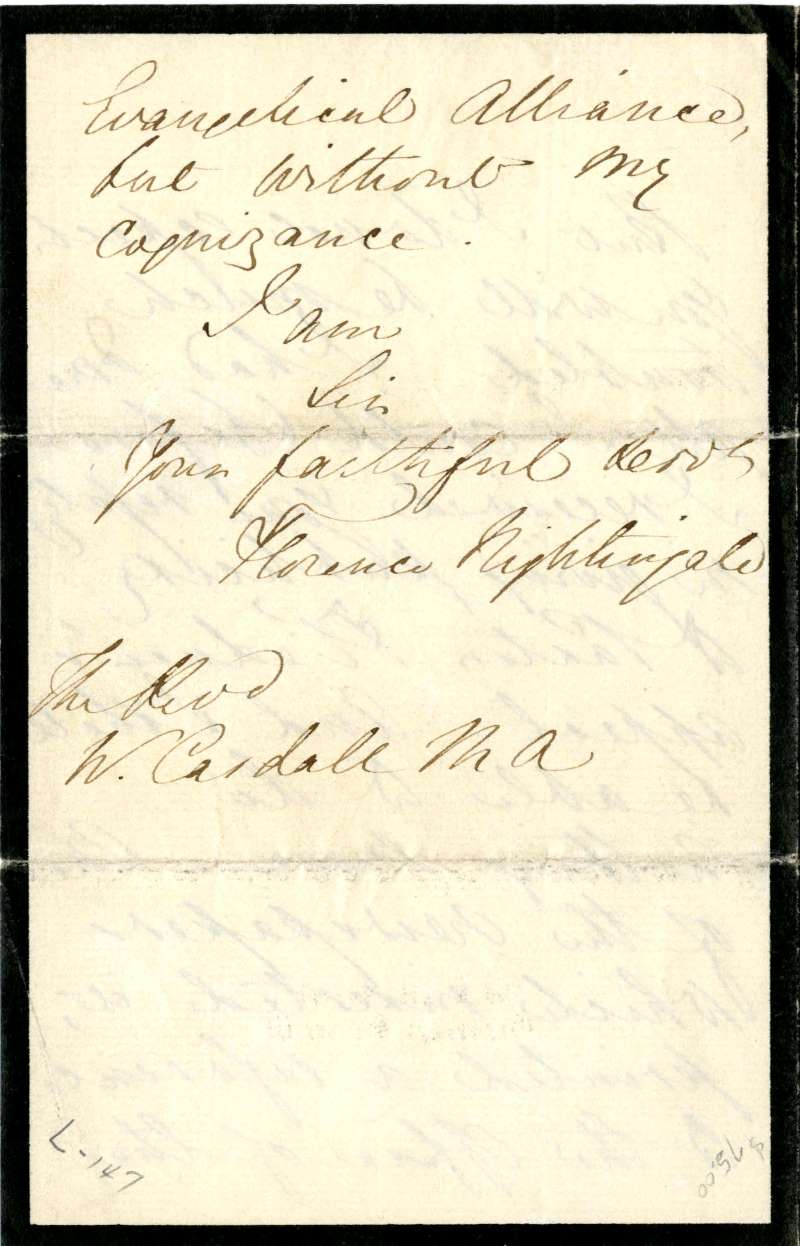 Evangelical Alliance,
but without my
cognizance.
I am
Sir
Your faithful servt
Florence Nightingale
The Revd
W. Casdall M A
L-147
$75.00